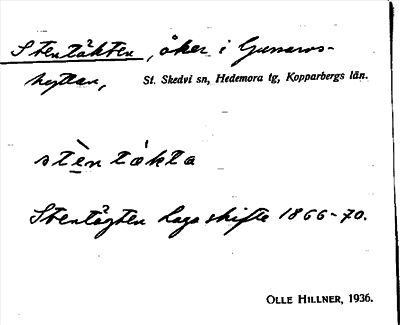 Stentäkten, åker i Gussarvs-
hyttan, St. Skedvi sn, Hedemora tg, Kopparbergs län.
stèn tákta
Stentägten Laga skifte 1866-70.
OLLE HILLNER, 1936.